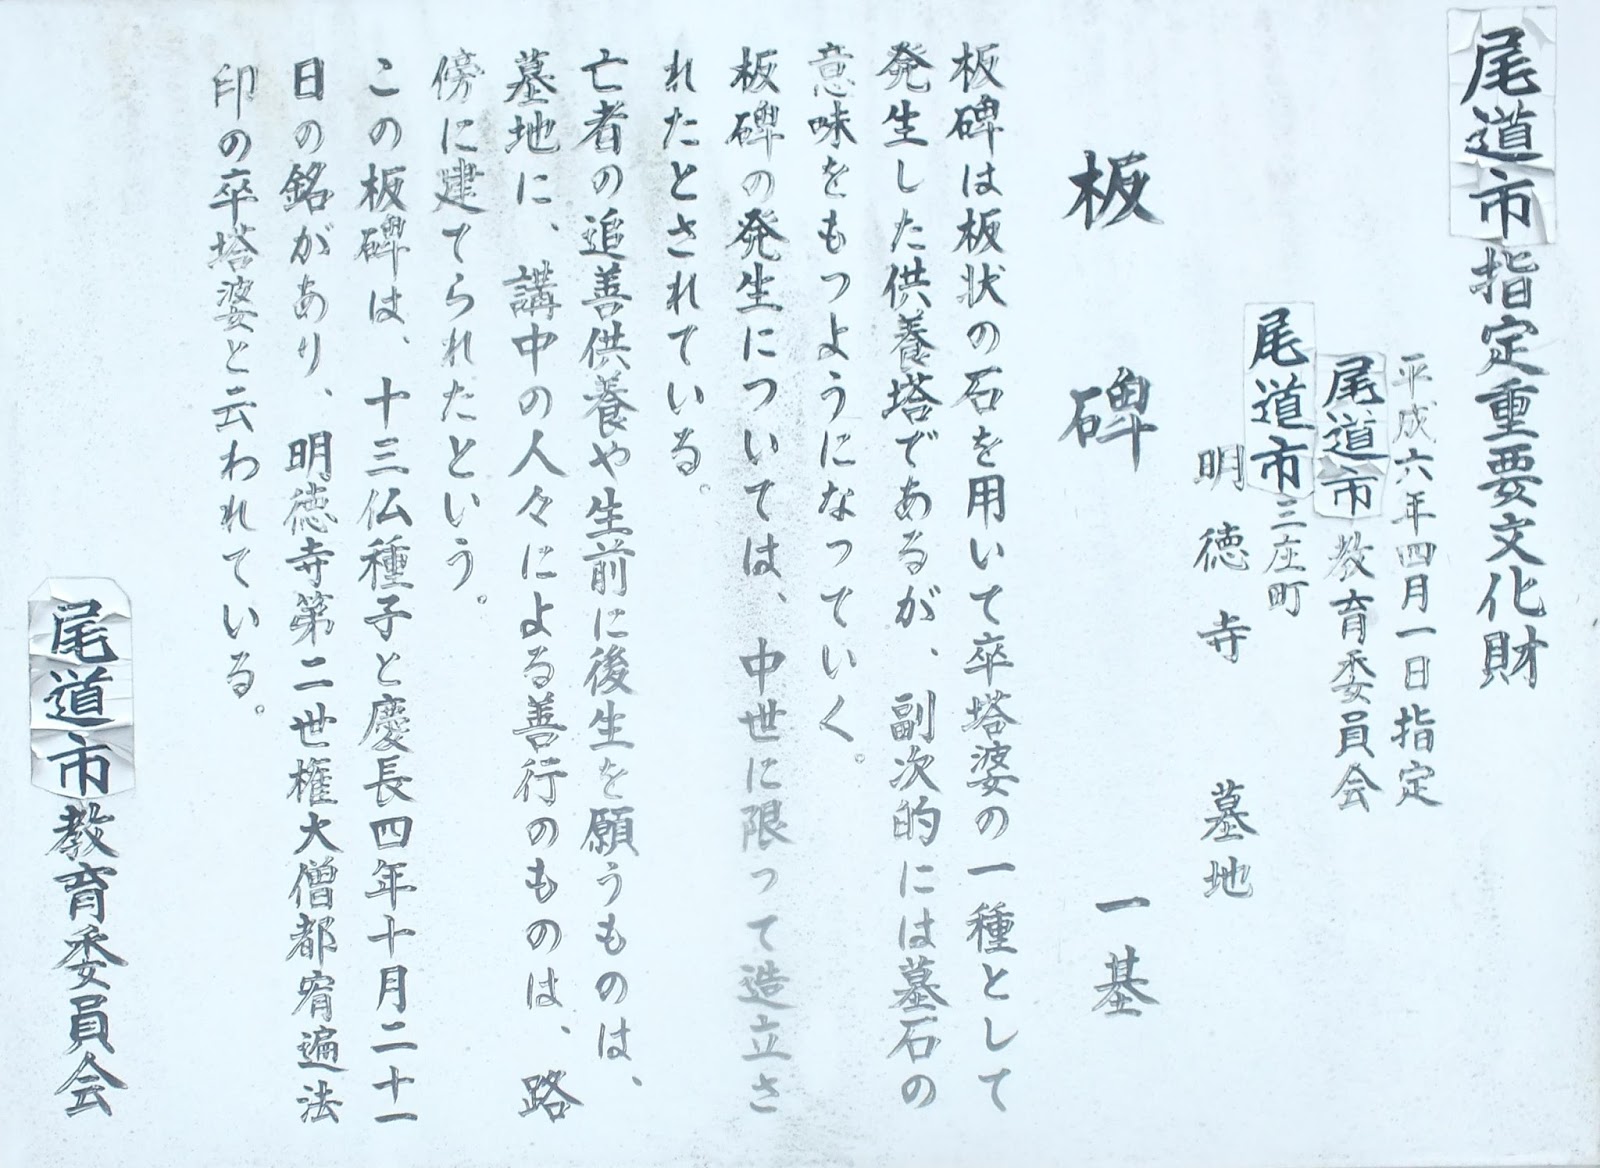 尾道市指定重要文化財
平成六年四月一日指定
尾道市教育委員会
尾道市三庄町
明徳寺 墓地
板碑 一基
板碑は板状の石を用いて卒塔婆の一種として
発生した供養塔であるが、副次的には墓石の
意味をもつようになっていく。
板碑の発生については、中世に限って造立さ
れたとされている。
亡者の追善供養や生前に後生を願うものは、
墓地に、講中の人々による善行のものは、路
傍に建てられたという。
この板碑は、十三仏種子と慶長四年十月二十一
日の銘があり、明徳寺第二世権大僧都宥遍法
印の卒塔婆と云われている。
尾道市教育委員会